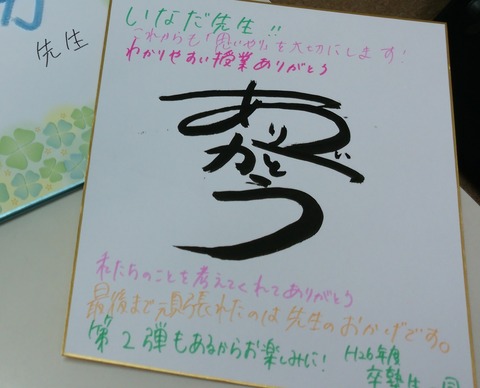 先生
いなだ先生!!
これからも「思いやり」を大切にします!
わかりやすい授業ありがとう
ありがとう
私たちのことを考えてくれてありがとう
最後まで頑張れたのは先生のおかげです。
第2弾もあるからお楽しみに!
H26年度
卒塾生